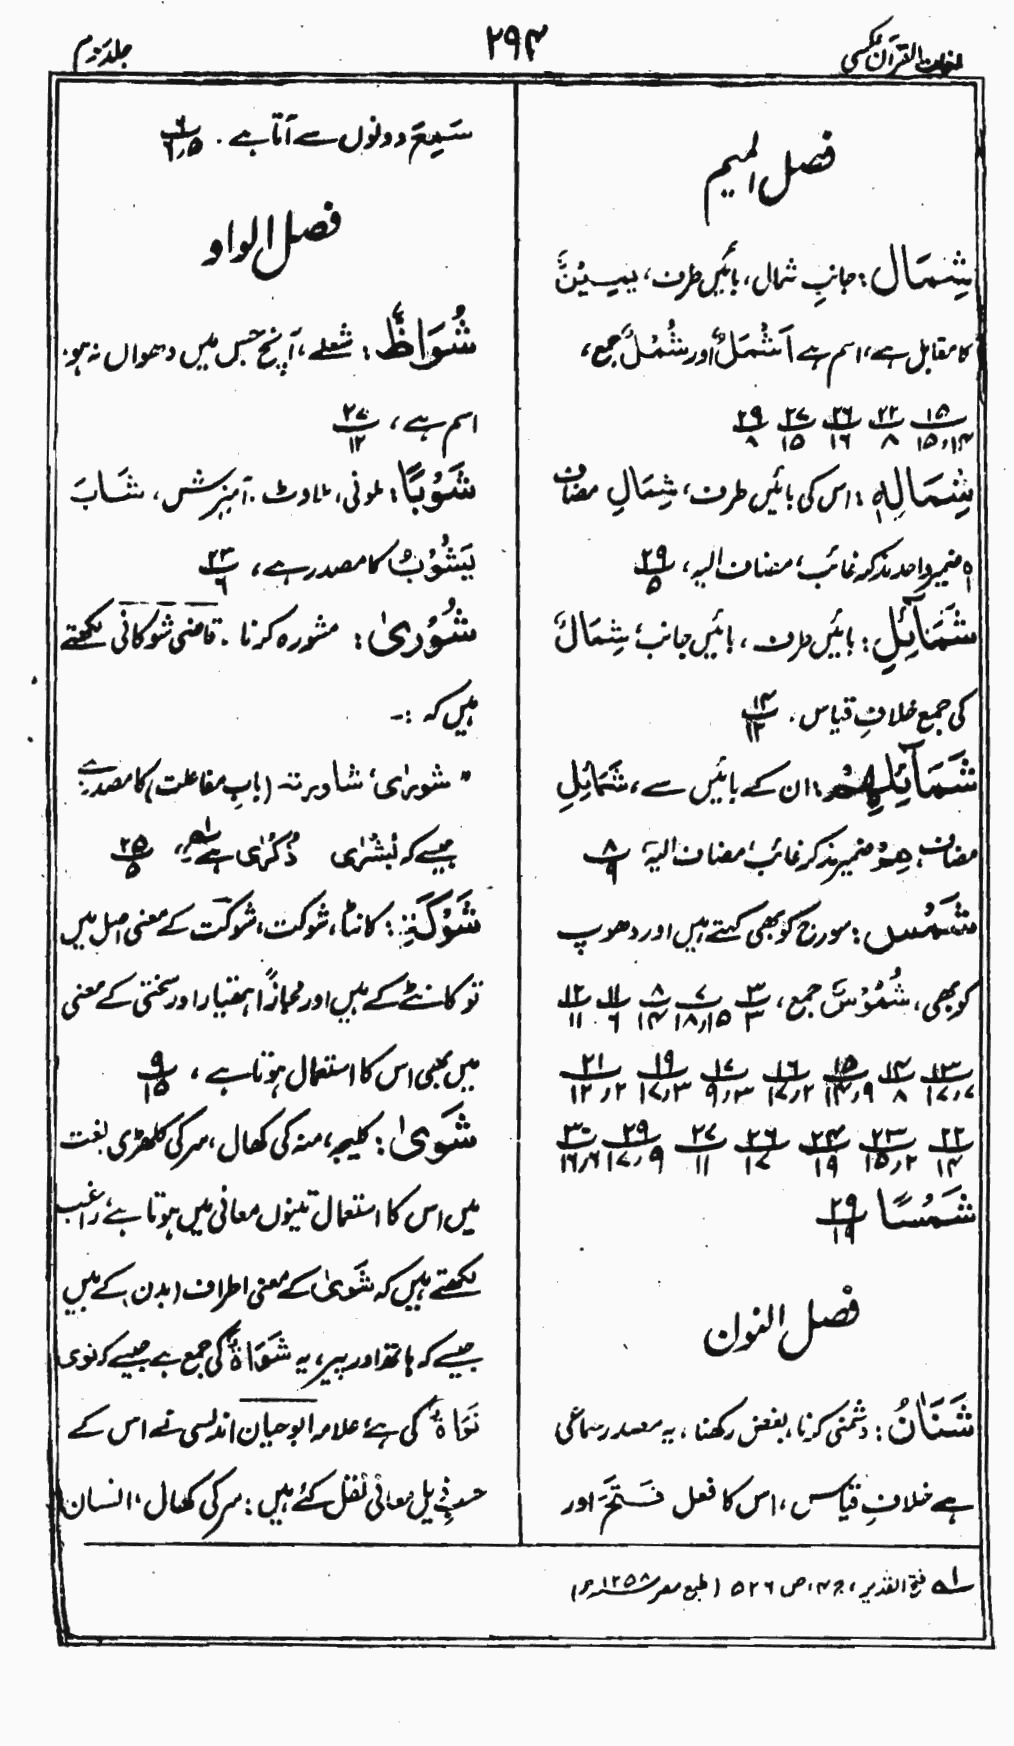 لغات القرآن عکسی
۲۹۴
جلد سوم
فصل المیم
شِمَال : جانبِ شمال، بائیں طرف، یَمِیْنٌ
کا مقابل ہے، اسم ہے اَشْمَلٌ اور شُمُلٌ جمع،
۱۵/۱۴،۱۵ ۲۲/۸ ۲۶/۱۶ ۲۷/۱۵ ۲۹/۸
شِمَالِهٖ : اس کی بائیں طرف، شِمَالِ مضاف
ہٖ ضمیر واحد مذکر غائب، مضاف الیہ، ۲۹/۵
شَمَآئِلِ : بائیں طرف، بائیں جانب، شِمَالٌ
کی جمع خلافِ قیاس. ۱۴/۱۲
شَمَآئِلِهِمْ : ان کے بائیں سے، شَمَائِلِ
مضاف، ھِمْ ضمیر مذکر غائب مضاف الیہ ۸/۹
شَمْس : سورج کو بھی کہتے ہیں اور دھوپ
کو بھی، شُمُوْسٌ جمع، ۳/۳ ۷/۱۸،۱۵ ۸/۱۴ ۱۱/۶ ۱۲/۱۱
۱۳/۱۷،۷ ۱۴/۸ ۱۵/۱۴،۹ ۱۶/۱۷،۲ ۱۷/۹،۳ ۱۹/۱۷،۳ ۲۱/۱۲،۲
۲۲/۱۴ ۲۳/۱۵،۲ ۲۴/۱۹ ۲۶/۱۷ ۲۷/۱۱ ۲۹/۱۷،۹ ۳۰/۱۶،۶
شَمْسًا ۲۹/۱۹
فصل النون
شَنَاٰنُ : دشمنی کرنا، بغض رکھنا، یہ مصدر سماعی
ہے خلافِ قیاس، اس کا فعل فَتَحَ اور
سَمِعَ دونوں سے آتا ہے. ۶/۶،۵
فصل الواو
شُوَاظٌ : شعلے، آنچ جس میں دھواں نہ ہو.
اسم ہے، ۲۷/۱۲
شَوْبًا : ملونی، ملاوٹ. آمیزش، شَابَ
یَشُوْبُ کا مصدر ہے، ۲۳/۶
شُوْرٰی : مشورہ کرنا. قاضی شوکانی لکھتے
ہیں کہ :-
" شوریٰ، شاورتہ (بابِ مفاعلت) کا مصدر ہے
جیسے کہ بُشْرٰی ذِکْرٰی ہے، ۲۵/۵
شَوْکَةِ : کانٹا، شوکت، شوکت کے معنی اصل میں
تو کانٹے کے ہیں اور مجازاً ہتھیار اور سختی کے معنی
میں بھی اس کا استعمال ہوتا ہے، ۹/۱۵
شَوٰی : کلیجہ، منہ کی کھال، سر کی کلھڑی لغت
میں اس کا استعمال تینوں معانی میں ہوتا ہے، راغب
لکھتے ہیں کہ شَوٰی کے معنی اطراف (بدن) کے ہیں
جیسے کہ ہاتھ اور پیر، یہ شَوَاةٌ کی جمع ہے جیسے کہ نوی
نَوَاةٌ کی ہے، علامہ ابو حیان اندلسی نے اس کے
حسبِ ذیل معانی نقل کئے ہیں: سر کی کھال، انسان
لہ فتح القدیر، ج ۴، ص ۵۲۶ (طبع مصر ۱۲۵۸ھ)